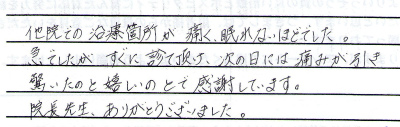 他院での治療箇所が痛く、眠れないほどでした。
急でしたがすぐに診て頂け、次の日には痛みが引き
驚いたのと嬉しいのとで感謝しています。
院長先生、ありがとうございました。